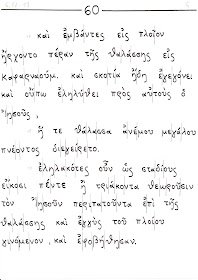 60
καὶ ἐμβάντες εἰς πλοῖον
ἤρχοντο πέραν τῆς θαλάσσης εἰς
Καφαρναούμ. καὶ σκοτία ἤδη ἐγεγόνει
καὶ οὔπω ἐληλύθει πρὸς αὐτοὺς ὁ
Ἰησοῦς,
ἥ τε θάλασσα ἀνέμου μεγάλου
πνέοντος διεγείρετο.
ἐληλακότες οὖν ὡς σταδίους
εἴκοσι πέντε ἢ τριάκοντα θεωροῦσιν
τὸν Ἰησοῦν περιπατοῦντα ἐπὶ τῆς
θαλάσσης καὶ ἐγγὺς τοῦ πλοίου
γινόμενον, καὶ ἐφοβήθησαν.